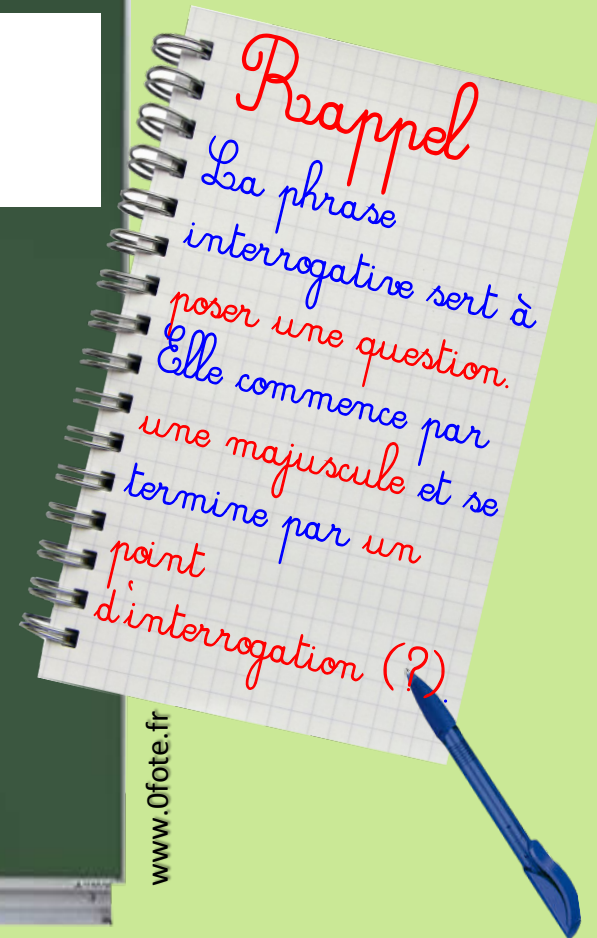 Rappel
La phrase
interrogative sert à
poser une question.
Elle commence par
une majuscule et se
termine par un
point
d'interrogation (?).
www.0fote.fr